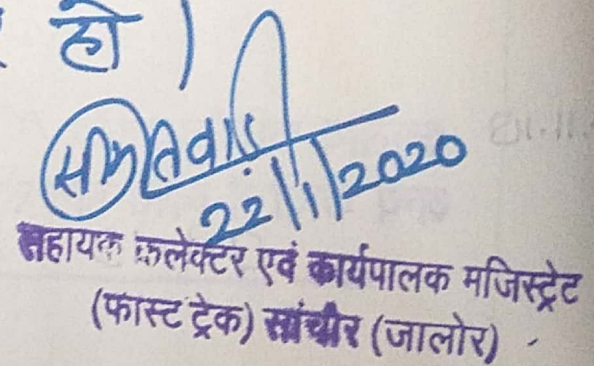 हो।
22/1/2020
सहायक कलेक्टर एवं कार्यपालक मजिस्ट्रेट
(फास्ट ट्रेक) सांचौर (जालोर)